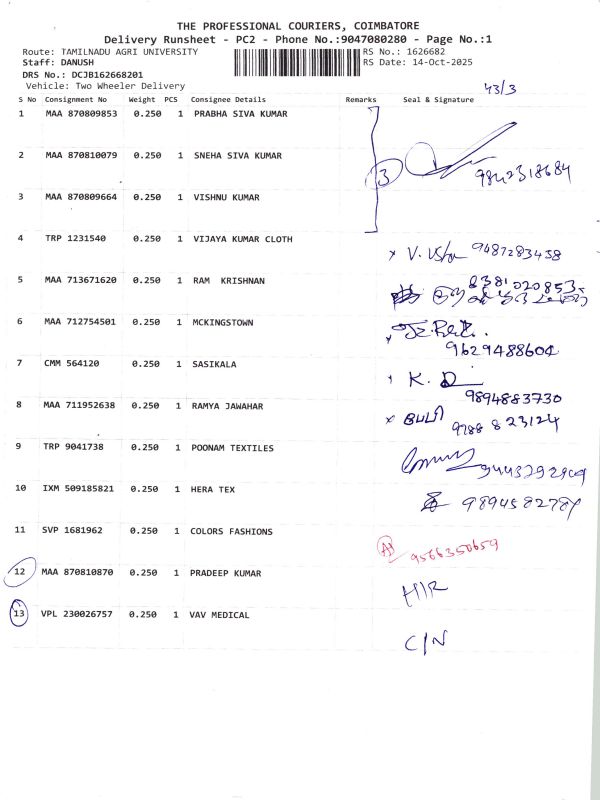 THE PROFESSIONAL COURIERS, COIMBATORE
Delivery Runsheet - PC2 - Phone No.:9047080280 - Page No.:1
Route: TAMILNADU AGRI UNIVERSITY RS No.: 1626682
Staff: DANUSH RS Date: 14-Oct-2025
DRS No.: DCJB162668201
Vehicle: Two Wheeler Delivery 43/3
S No Consignment No Weight PCS Consignee Details Remarks Seal & Signature
1 MAA 870809853 0.250 1 PRABHA SIVA KUMAR
2 MAA 870810079 0.250 1 SNEHA SIVA KUMAR 3 9842318684
3 MAA 870809664 0.250 1 VISHNU KUMAR
4 TRP 1231540 0.250 1 VIJAYA KUMAR CLOTH 9487283458
5 MAA 713671620 0.250 1 RAM KRISHNAN 8381020853
6 MAA 712754501 0.250 1 MCKINGSTOWN
9629488604
7 CMM 564120 0.250 1 SASIKALA K. D
9894883730
8 MAA 711952638 0.250 1 RAMYA JAWAHAR 9788823124
9 TRP 9041738 0.250 1 POONAM TEXTILES
10 IXM 509185821 0.250 1 HERA TEX
11 SVP 1681962 0.250 1 COLORS FASHIONS 9566350659
12 MAA 870810870 0.250 1 PRADEEP KUMAR H/R
13 VPL 230026757 0.250 1 VAV MEDICAL
C/N